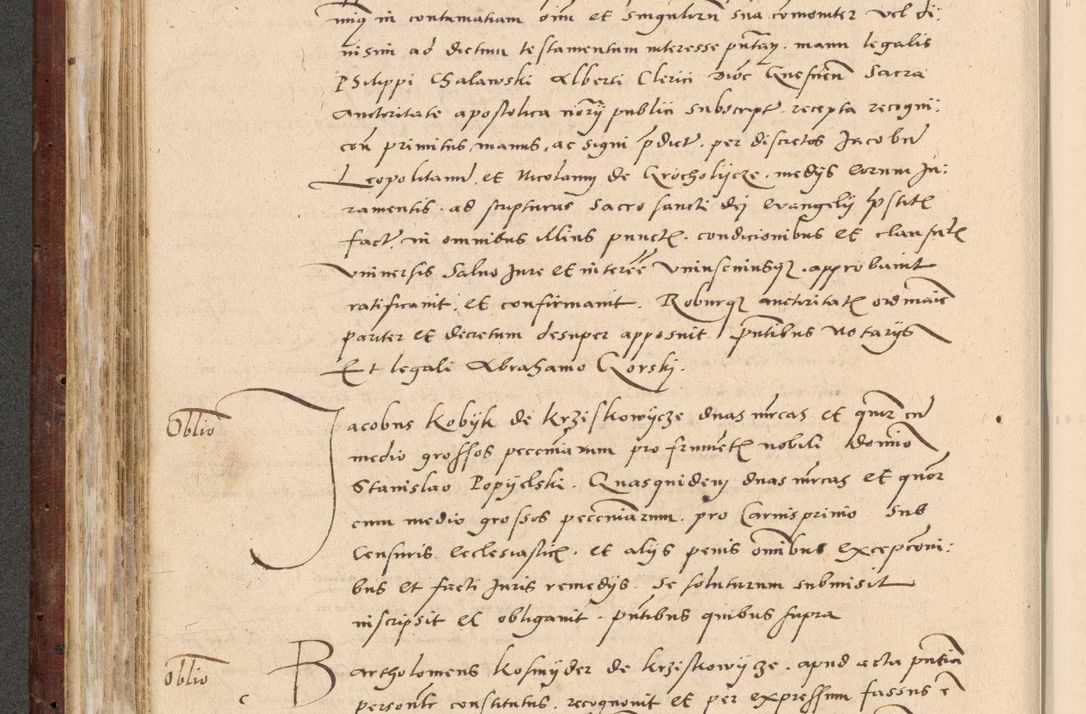 mīq in contumatiam oīm et singulorū sua comoniter vel di:
nisim ad dictum testamentum interesse pūtaȝ. manu legalis
Philippi Chalawski Alberti Clerici Dioc Gnesneñ Sacra
auctoritate apostolica notrȳ publici subscript. recepta recogni:
cōn primitus, manus, ac signi p̄dict. per discretos Jacobū
Leopolitanū, et Nicolaum de Grocholycze. medys eorum Ju:
ramentis. ad scripturas sacrosancti dei evangelÿ p̄stitꝭ
fact. in omnibus illius punctꝭ. condicionibus et clausulꝭ
universis Salvo Jure et interēē uniuscuiusqȝ. approbavit
ratificavit, et confirmavit. Roburqȝ auctoritatꝭ ordinarie
pariter et decretum desuper apposuit. p̄ntibus Notarÿs
Et legali Abrahamo Gorskj.
Oblio
Jacobus Kobyk de Krzeskowycze duas mrcas et quor cū
medio grossos pecuniarum pro frumētꝭ nobili domino
Stanislao Popyelski. Quasquidem duas mrcas et quor
cum medio grossos pecuniarum. pro Carnisprivio sub
Censuris ecclesiasticꝭ. et alÿs penis omībus exceptioni:
bus et facti Juris remedÿs. se soluturum submisit
inscripsit et obligavit. p̄ntibus quibus supra
Oblio
Bartholomeus Kosmyder de Krzeskowycze. apud acta p̄ntia
personlr constitutus, recognovit et per expressum fassus ē